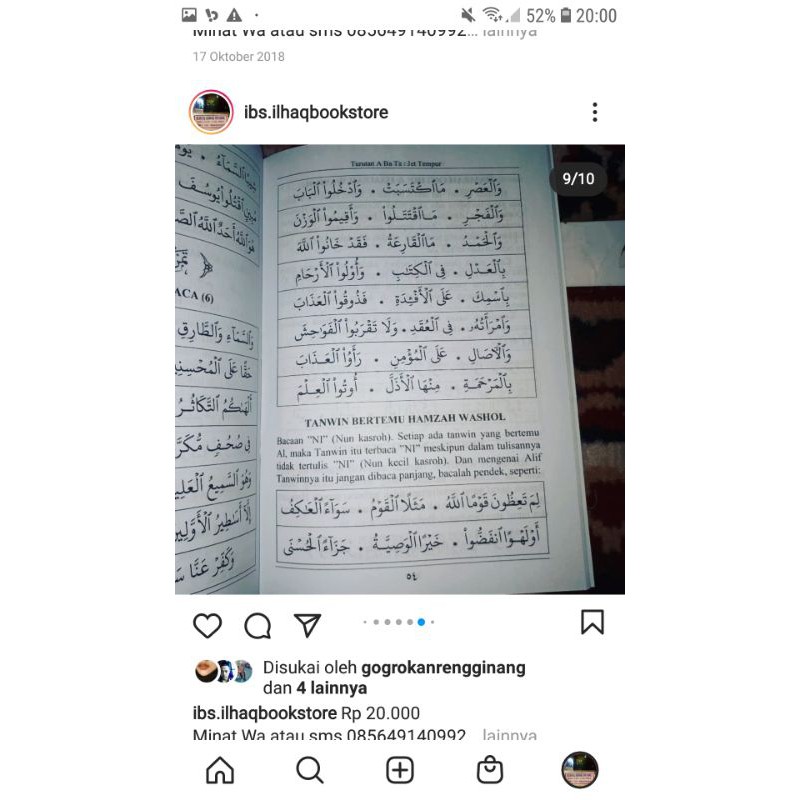 52% 20:00
Minat Wa atau sms 085649140992... lainnya
17 Oktober 2018
ibs.ilhaqbookstore
9/10
Tarutan A Ba Ta : Jet Tempur
وَالْعَصْرِ . مَا اكْتَسَبَتْ . وَادْخُلُوا الْبَابَ
وَالْفَجْرِ . مَا اقْتَتَلُوا . وَأَقِيمُوا الْوَزْنَ
وَالْحَمْدُ . مَا الْقَارِعَةُ . فَقَدْ خَانُوا اللّٰهَ
بِالْعَدْلِ . فِى الْكِتٰبِ . وَأُولُوا الْأَرْحَامِ
بِاسْمِكَ . عَلَى الْأَفْئِدَةِ . فَذُوقُوا الْعَذَابَ
وَامْرَأَتُهُ . فِى الْعُقَدِ . وَلَا تَقْرَبُوا الْفَوَاحِشَ
وَالْاٰصَالِ . عَلَى الْمُؤْمِنِ . رَأَوُا الْعَذَابَ
بِالْمَرْحَمَةِ . مِنْهَا الْأَذَلَّ . أُوتُوا الْعِلْمَ
TANWIN BERTEMU HAMZAH WASHOL
Bacaan "NI" (Nun kasroh). Setiap ada tanwin yang bertemu
Al, maka Tanwin itu terbaca "NI" meskipun dalam tulisannya
tidak tertulis "NI" (Nun kecil kasroh). Dan mengenai Alif
Tanwinnya itu jangan dibaca panjang, bacalah pendek, seperti:
لِمَ تَعِظُونَ قَوْمًا اللّٰهُ . مَثَلًا الْقَوْمُ . سَوَآءً الْعٰكِفُ
أَوْ لَهْوًا انْفَضُّوا . خَيْرًا الْوَصِيَّةُ . جَزَآءً الْحُسْنٰى
٥٤
ACA (6)
وَالسَّمَآءِ وَالطَّارِقِ
حَقًّا عَلَى الْمُحْسِنِ
أَلْهٰىكُمُ التَّكَاثُرُ
فِى صُحُفٍ مُّكَرَّ
وَهُوَ السَّمِيعُ الْعَلِي
إِلَّا أَسَاطِيرُ الْأَوَّلِي
وَكَفِّرْ عَنَّا سَ
Disukai oleh gogrokanrengginang
dan 4 lainnya
ibs.ilhaqbookstore Rp 20.000
Minat Wa atau sms 085649140992... lainnya